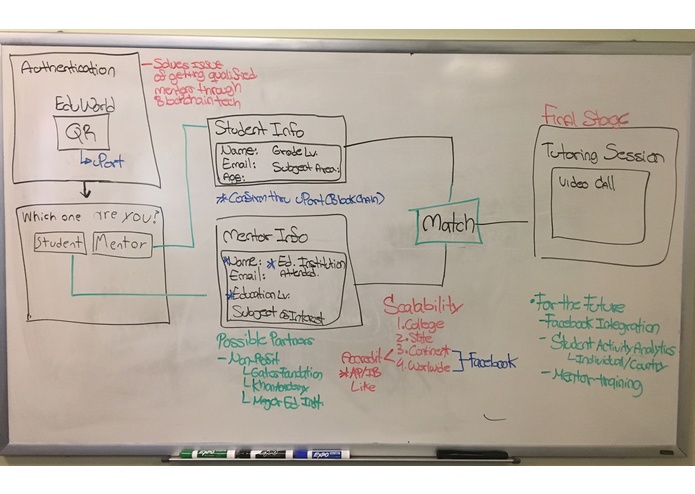 Authentication
EduWorld
QR
uPort
- Solves issue
of getting qualified
mentors through
Blockchain tech
Which one are you?
Student
Mentor
Student Info
Name: Grade Lv.
Email: Subject Area:
Age:
* Confirm thru uPort (BlockChain)
Mentor Info
*Name: * Ed. Institution
Email: Attended.
*Education Lv:
Subject of Interest
Match
Final Stage
Tutoring Session
Video Call
Possible Partners
- Non-Profit
Gates Fundation
Khan Academy
Mayor Ed Inst.
Scalability
1. College
2. State
3. Continent
4. Worlwide
Facebook
Accredit
*AP/IB
Like
• For the Future
- Facebook Integration
- Student Activity Analytics
Individual/Country
- Mentor training
EXPO
EXPO
EXPO